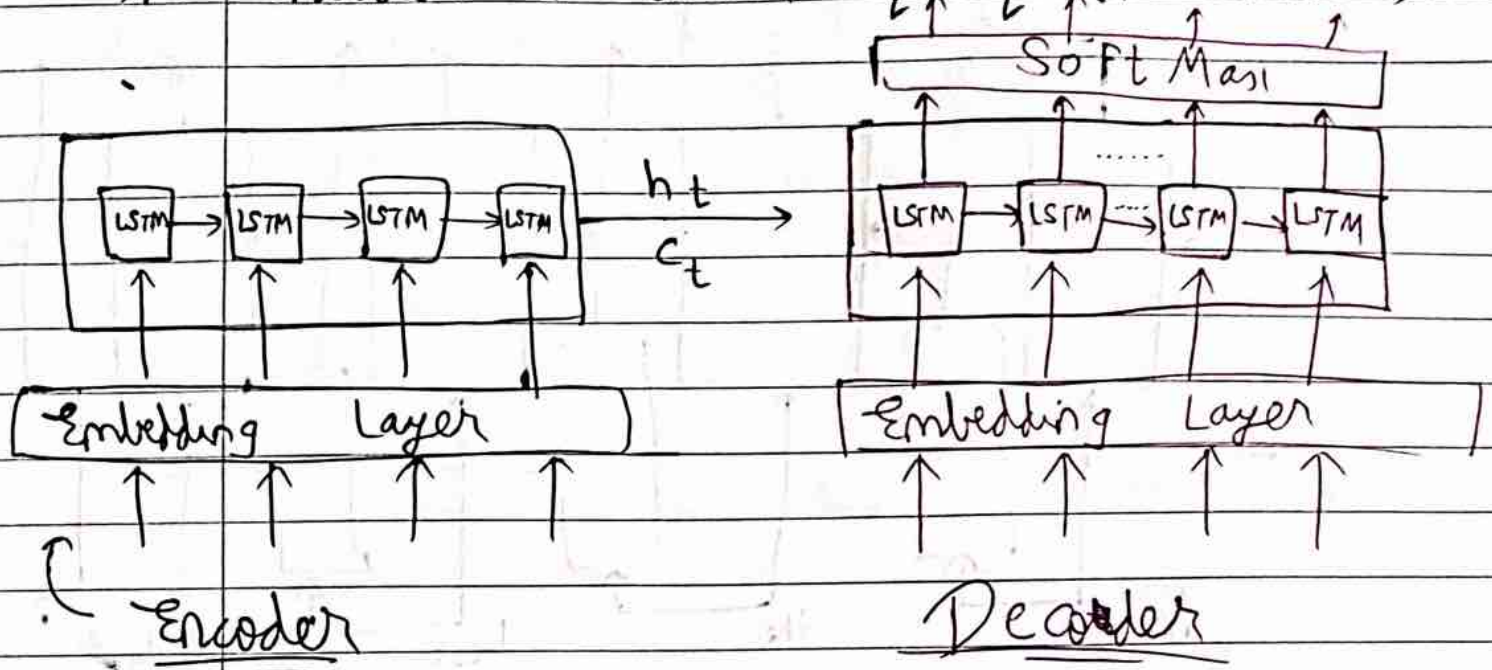 Soft Max
LSTM LSTM LSTM LSTM
h t
c t
LSTM LSTM ..... LSTM LSTM
.......
Embedding Layer
Embedding Layer
Encoder
Decoder